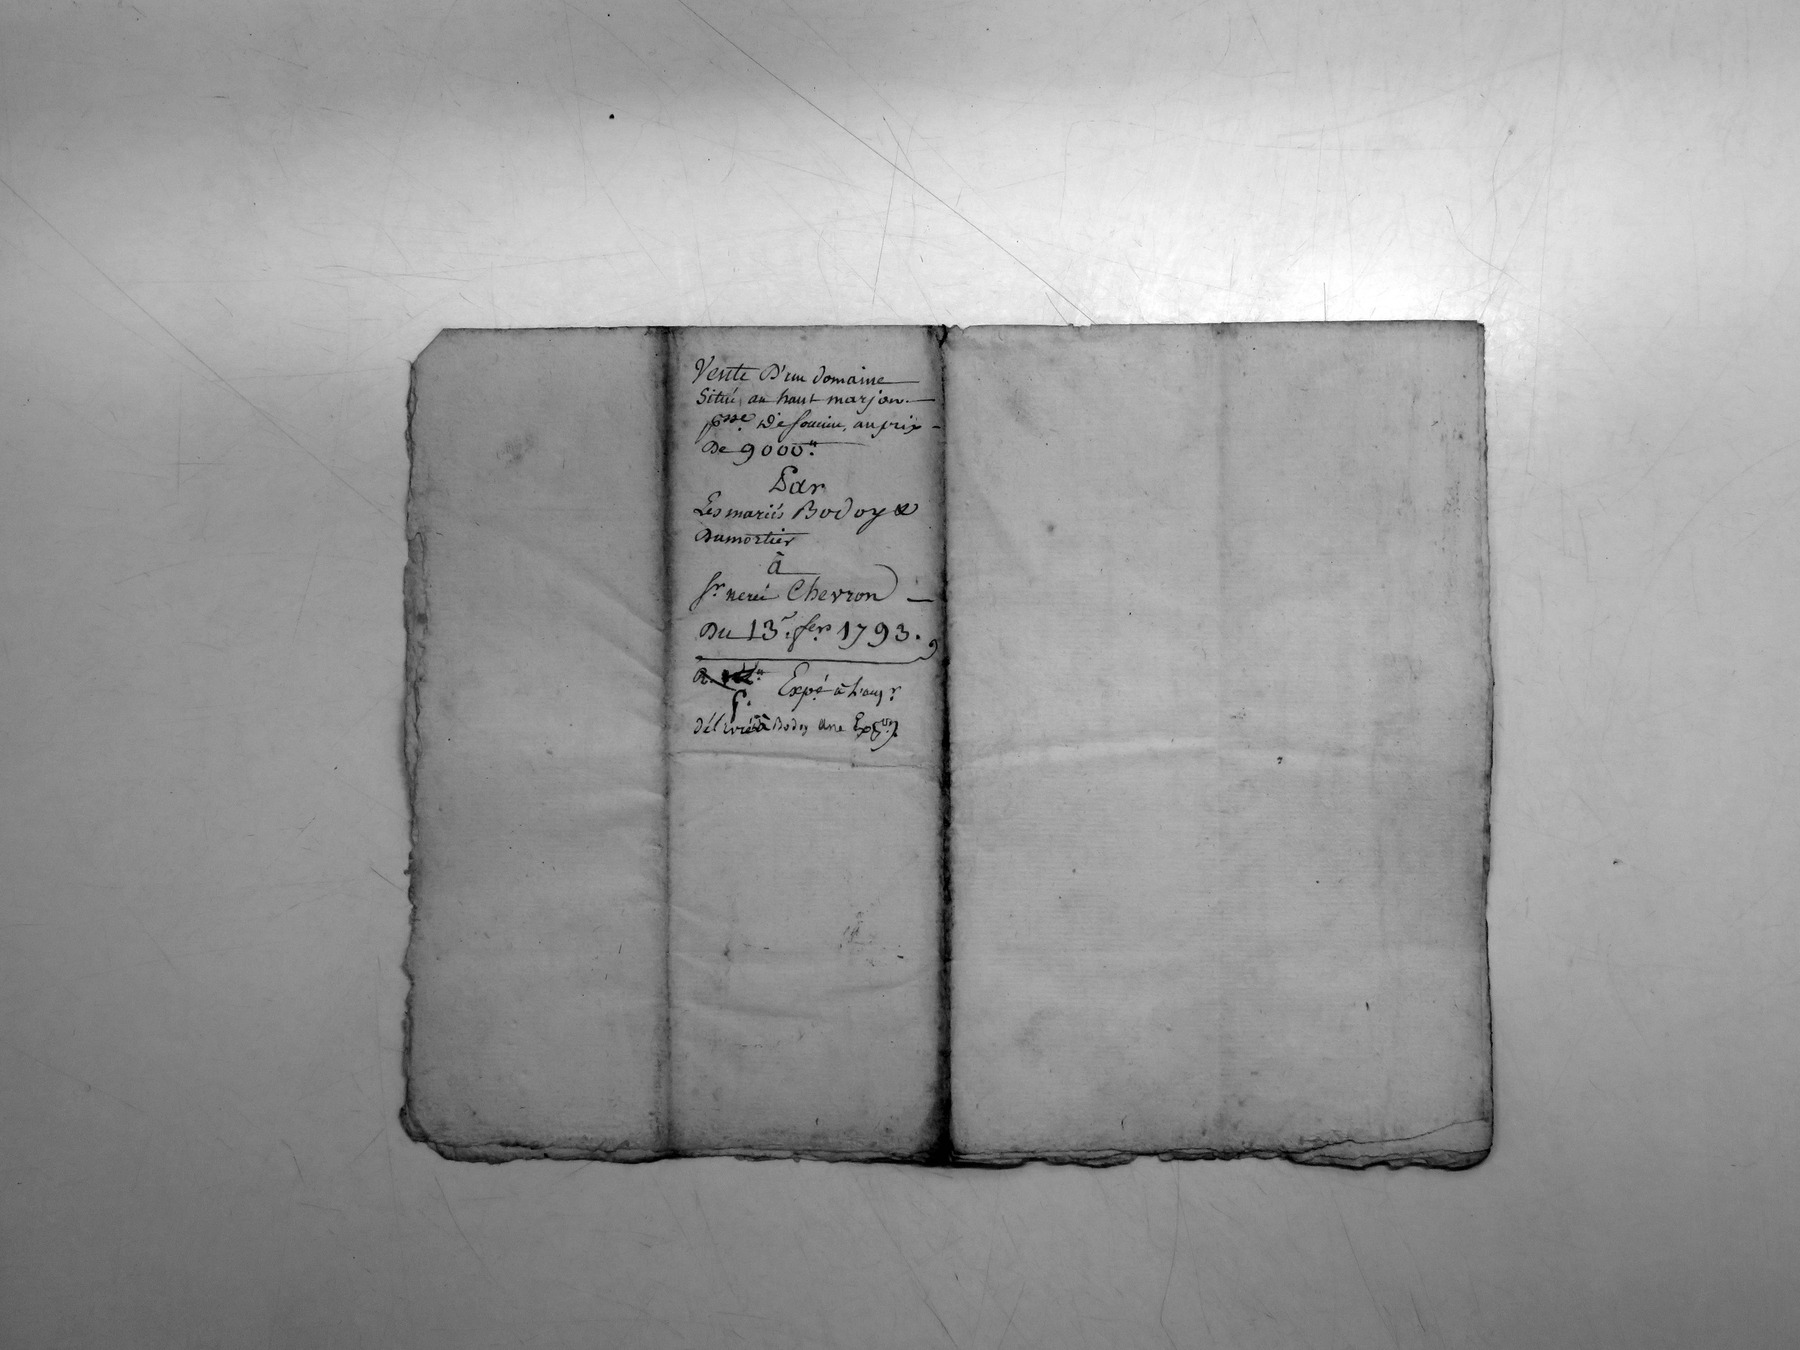 Vente D'un domaine
Situé au haut marjon.
psse De soucieu, au prix
De 9000.tt
Par
Les mariés Bodoy &
Dumortier
à
Sr neréé Chevron
Du 13.e fer. 1793.
Expé à l'aqr
délivré à Bodoy une Expon.